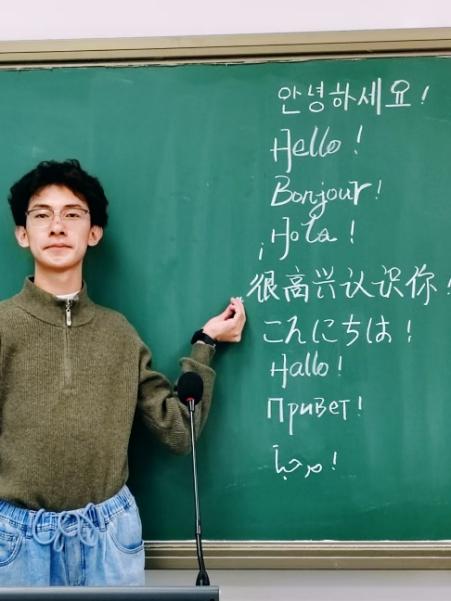 안녕하세요!
Hello!
Bonjour!
¡Hola!
很高兴认识你!
こんにちは!
Hallo!
Привет!
مرحبا!